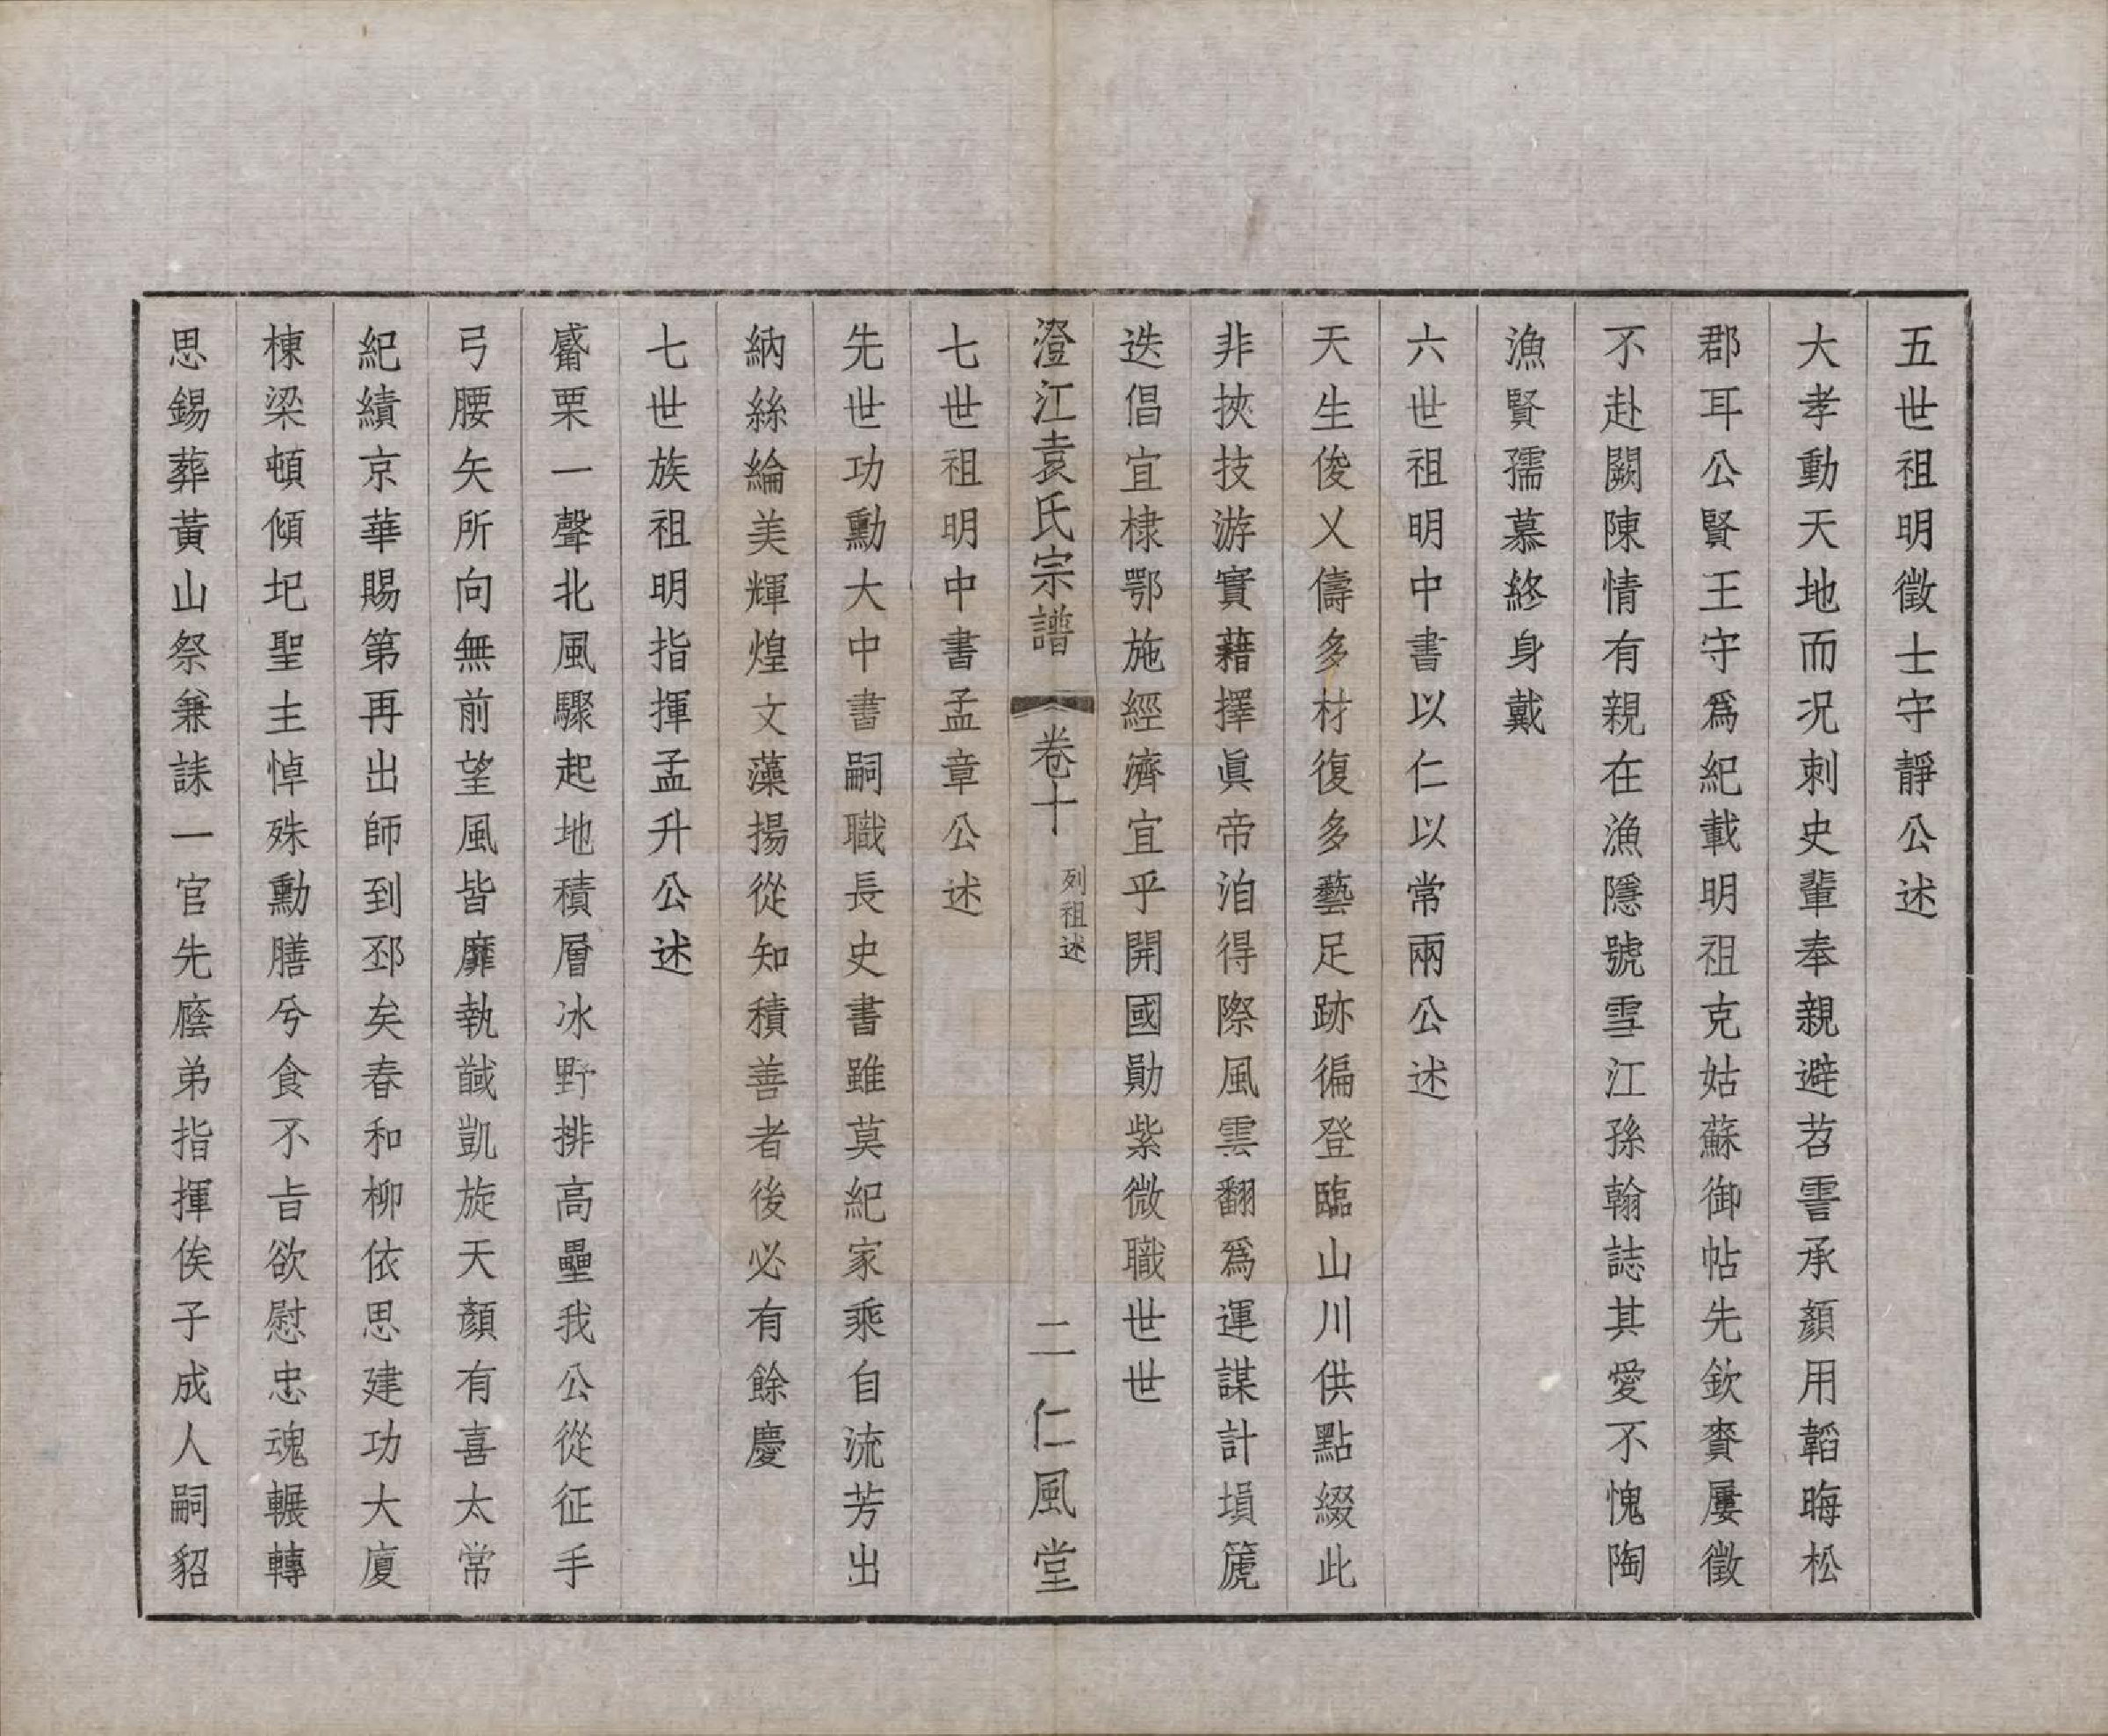 五世祖明徵士守靜公述
大孝動天地而况刺史輩奉親避苕霅承顏用韜晦松
郡耳公賢王守爲紀載明祖克姑蘇御帖先欽賚屢徵
不赴闕陳情有親在漁隱號雪江孫翰誌其愛不愧陶
漁賢孺慕終身戴
六世祖明中書以仁以常兩公述
天生俊乂儔多材復多藝足跡徧登臨山川供點綴此
非挾技游實藉擇眞帝洎得際風雲翻爲運謀計塤篪
迭倡宜棣鄂施經濟宜乎開國勛紫微職世世
澄江袁氏宗譜 卷十 列祖述 二 仁風堂
七世祖明中書孟章公述
先世功勳大中書嗣職長史書雖莫紀家乘自流芳出
納絲綸美輝煌文藻揚從知積善者後必有餘慶
七世族祖明指揮孟升公述
觱栗一聲北風驟起地積層冰野排高壘我公從征手
弓腰矢所向無前望風皆靡執馘凱旋天顏有喜太常
紀績京華賜第再出師到邳矣春和柳依思建功大廈
棟梁頓傾圯聖主悼殊勳膳兮食不旨欲慰忠魂輾轉
思錫葬黃山祭兼誄一官先廕弟指揮俟子成人嗣貂